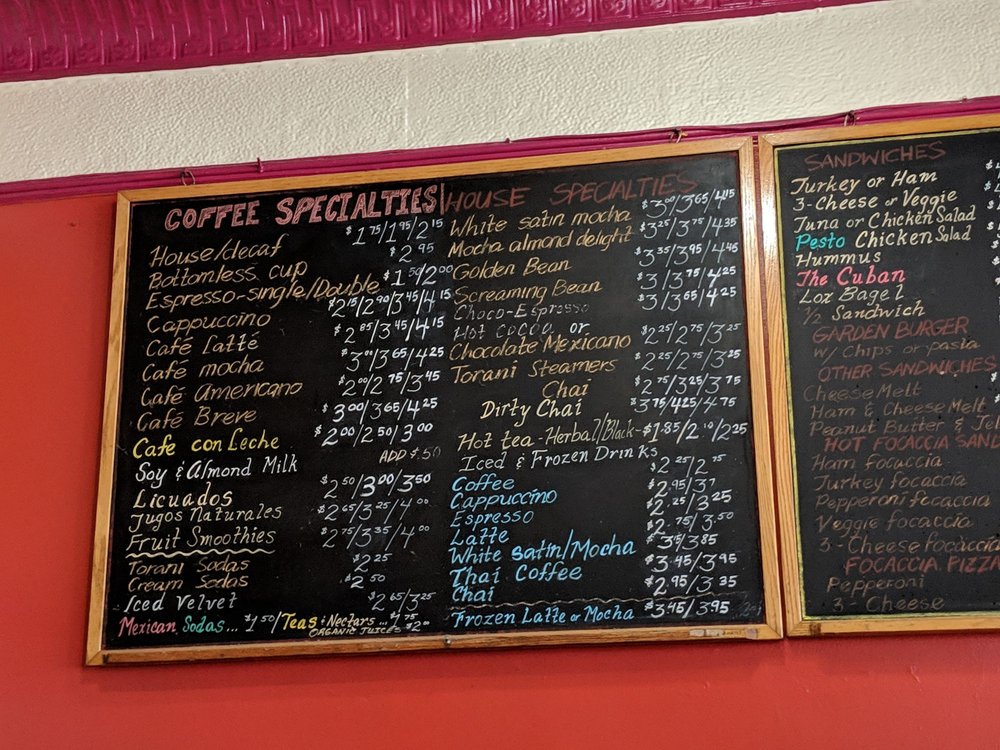 COFFEE SPECIALTIES
House/decaf $1.75/1.95/2.15
Bottomless cup $2.95
Espresso-single/Double $1.50/2.00
Cappuccino $2.15/2.90/3.45/4.15
Café Latte $2.85/3.45/4.15
Café mocha $3.00/3.65/4.25
Café Americano $2.00/2.75/3.45
Café Breve $3.00/3.65/4.25
Cafe con Leche $2.00/2.50/3.00
Soy & Almond Milk ADD $.50
Licuados $2.50/3.00/3.50
Jugos Naturales $2.65/3.25/4.00
Fruit Smoothies $2.75/3.35/4.00
Torani Sodas $2.25
Cream Sodas $2.50
Iced Velvet $2.65/3.25
Mexican Sodas... $1.50/Teas & Nectars... $1.75
ORGANIC JUICES $2.00
HOUSE SPECIALTIES
White satin mocha $3.00/3.65/4.15
Mocha almond delight $3.25/3.75/4.35
Golden Bean $3.35/3.95/4.45
Screaming Bean $3/3.75/4.25
Choco-Espresso $3/3.65/4.25
Hot cocoa or
Chocolate Mexicano $2.25/2.75/3.25
Torani Steamers $2.25/2.75/3.25
Chai $2.75/3.25/3.75
Dirty Chai $3.75/4.25/4.75
Hot tea-Herbal/Black-$1.85/2.10/2.25
Iced & Frozen Drinks
Coffee $2.25/2.75
Cappuccino $2.95/3.
Espresso $2.25/3.25
Latte $2.75/3.50
White Satin/Mocha $3.15/3.85
Thai Coffee $3.45/3.95
Chai $2.95/3.35
Frozen Latte or Mocha $3.45/3.95
SANDWICHES
Turkey or Ham
3-Cheese or Veggie
Tuna or Chicken Salad
Pesto Chicken Salad
Hummus
The Cuban
Lox Bagel
1/2 Sandwich
GARDEN BURGER
w/ Chips or pasta
OTHER SANDWICHES
Cheese Melt
Ham & Cheese Melt
Peanut Butter & Jel
HOT FOCACCIA SAND
Ham focaccia
Turkey focaccia
Pepperoni focaccia
Veggie focaccia
3-Cheese focaccia
FOCACCIA PIZZA
Pepperoni
3-Cheese